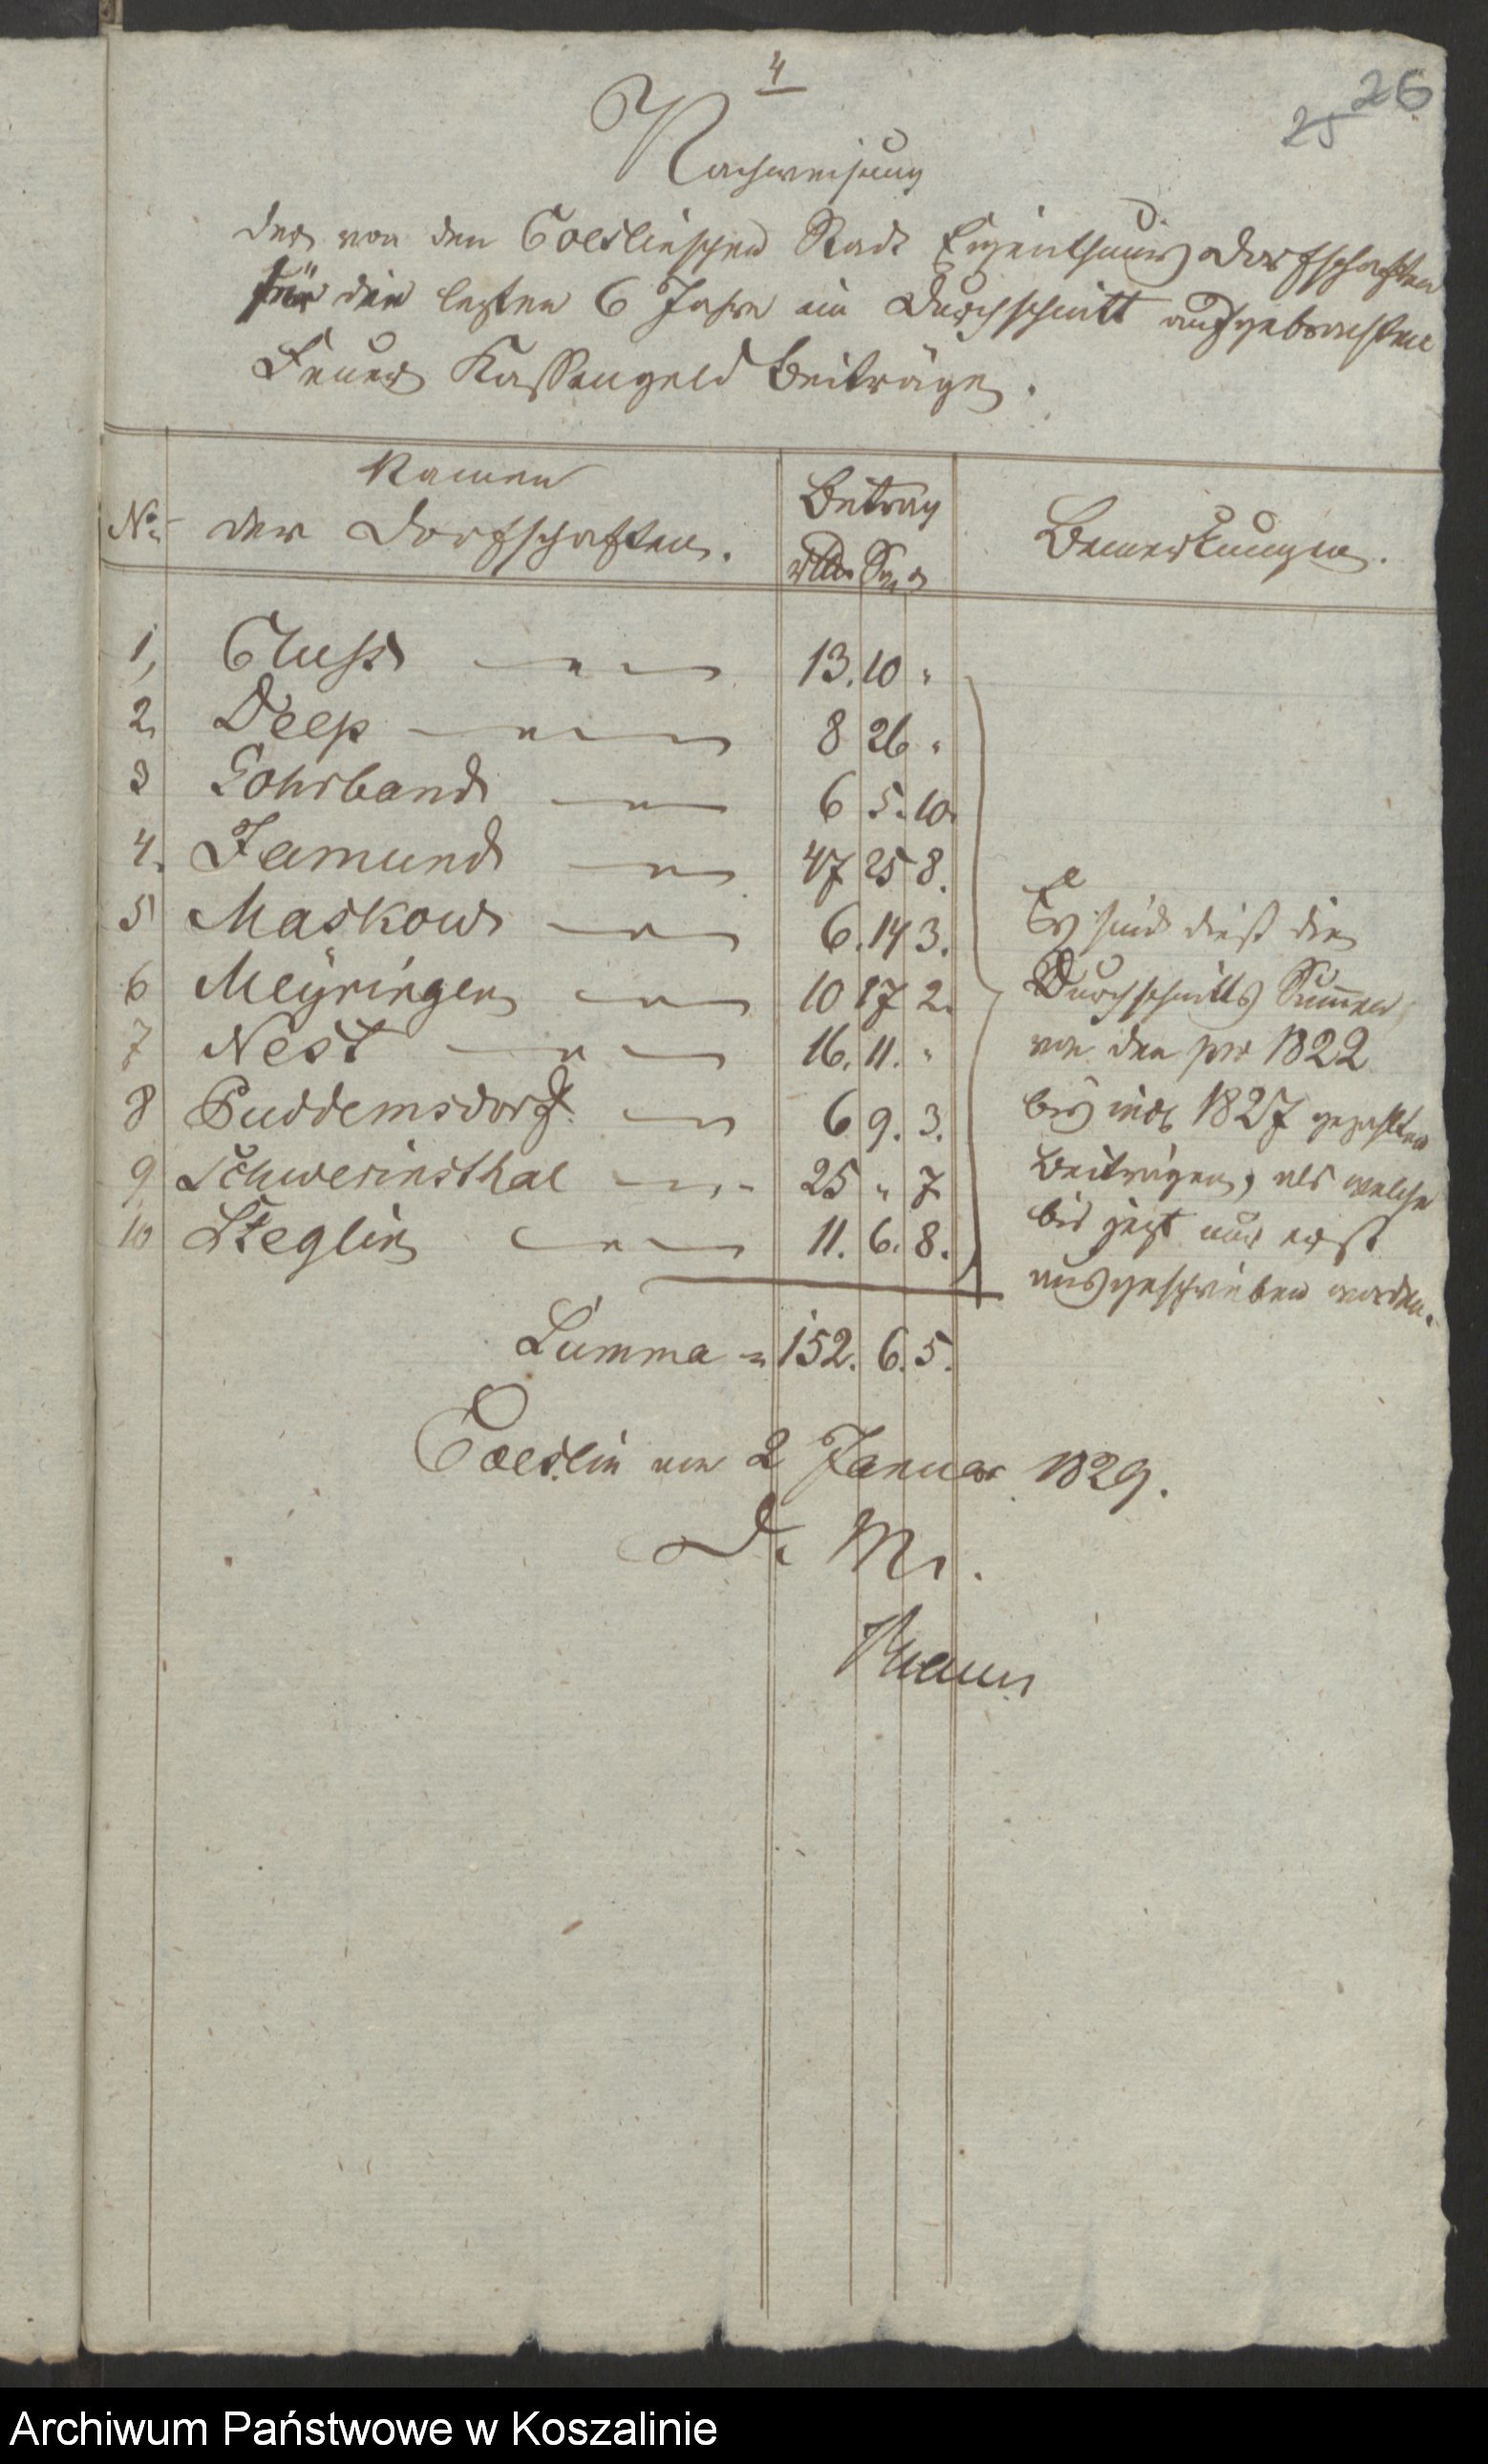 4
26
25
Nachweisung
der von den Coeslinschen Stadt Eigenthums Dorfschaften
für die lezten 6 Jahre im Durchschnitt aufgebrachten
Feuer Kassengeld Beiträge.
No. Namen der Dorfschaften. Betrag Bemerkungen.
rthlr Sg d
1, Cluss 13. 10 "
2. Deep 8 26 "
3 Gohrband 6 5. 10.
4. Jamund 47 25 8.
5 Maskow 6. 14 3.
6 Meyringen 10 17 2.
7 Nest 16. 11. "
8 Puddemsdorf. 6 9. 3.
9 Schwerinsthal 25 " 7
10 Steglin 11. 6. 8.
Es sind dieß die
Durchschnitts Summen
von den pro 1822
bis incl 1827 gezahlten
Beiträgen, als welche
bis jezt nur erst
ausgeschrieben worden.
Summa = 152. 6. 5.
Coeslin den 2 Januar 1829.
D. M.
Archiwum Państwowe w Koszalinie